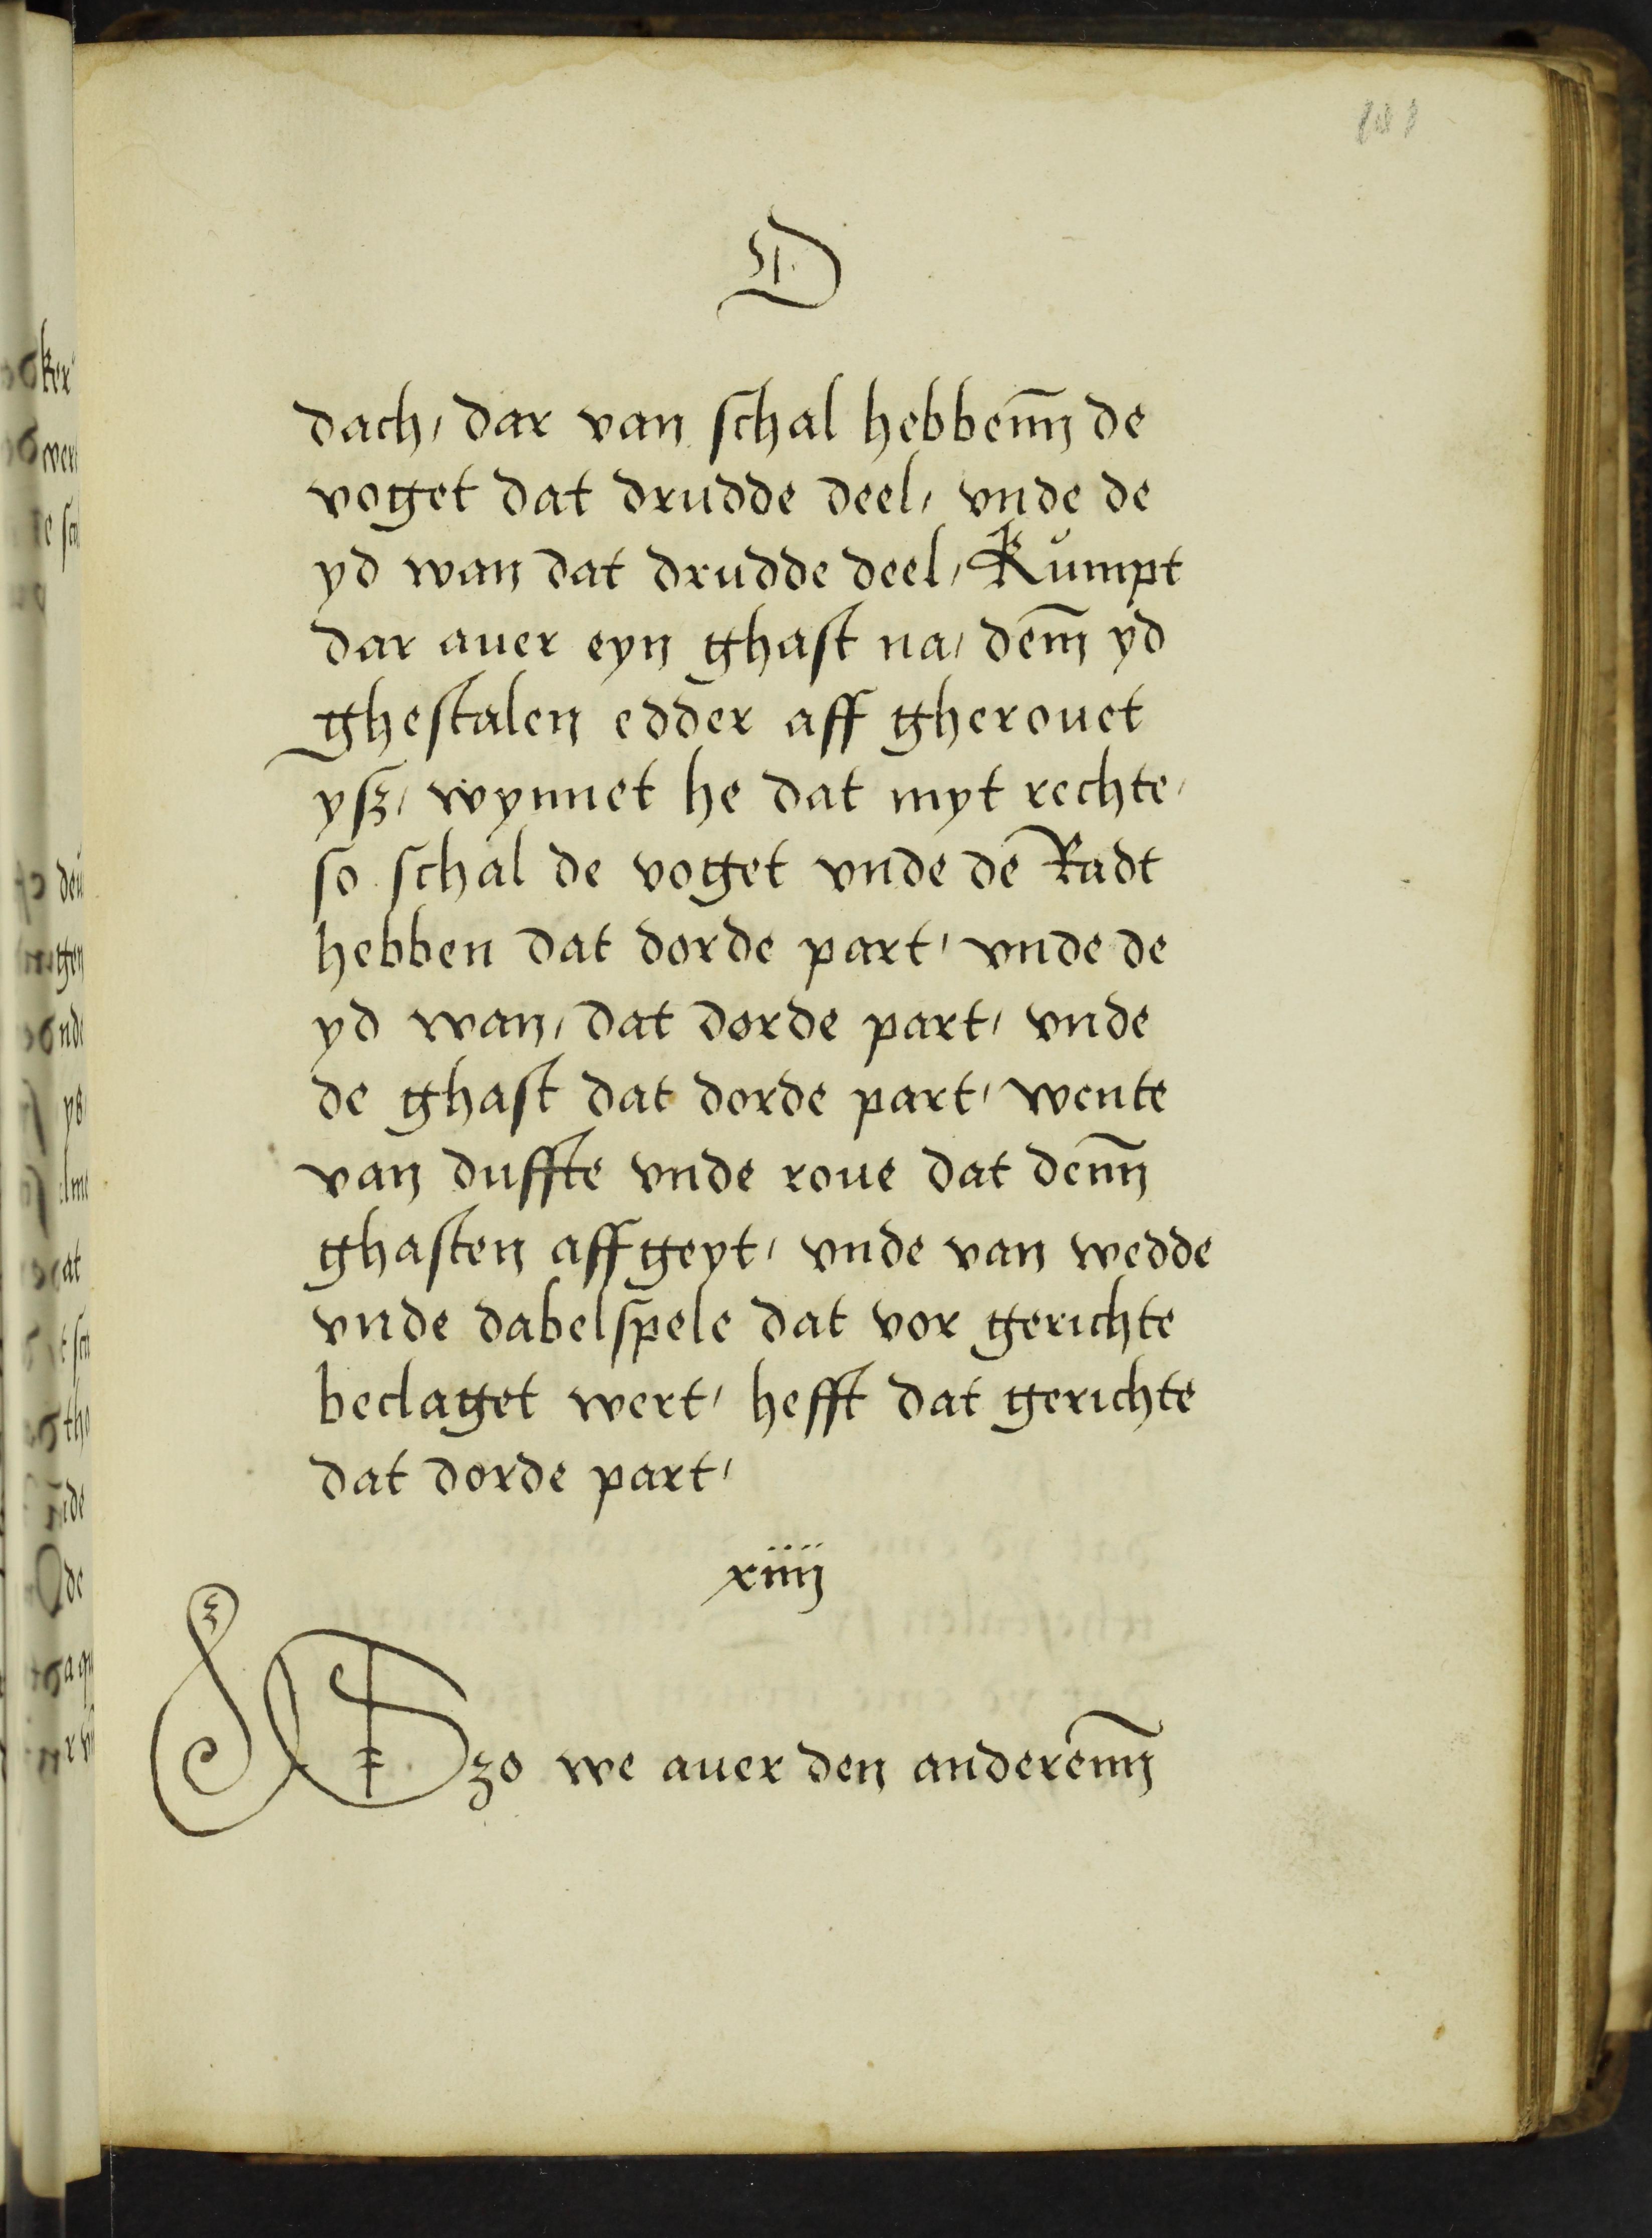 D
dach, dar van schal hebbenn de
voget dat drudde deel, vnde de
yd wan dat drudde deel, Kumpt
dar auer eyn ghast na, dem yd
ghestalen edder aff gherouet
ysz, wynnet he dat myt rechte,
so schal de voget vnde de Radt
hebben dat dorde part, vnde de
yd wan, dat dorde part, vnde
de ghast dat dorde part, wente
van duffte vnde roue dat denn
ghasten aff geyt, vnde van wedde
vnde dabelspele dat vor gerichte
beclaget wert, hefft dat gerichte
dat dorde part,
xiiij
Szo we auer den anderenn